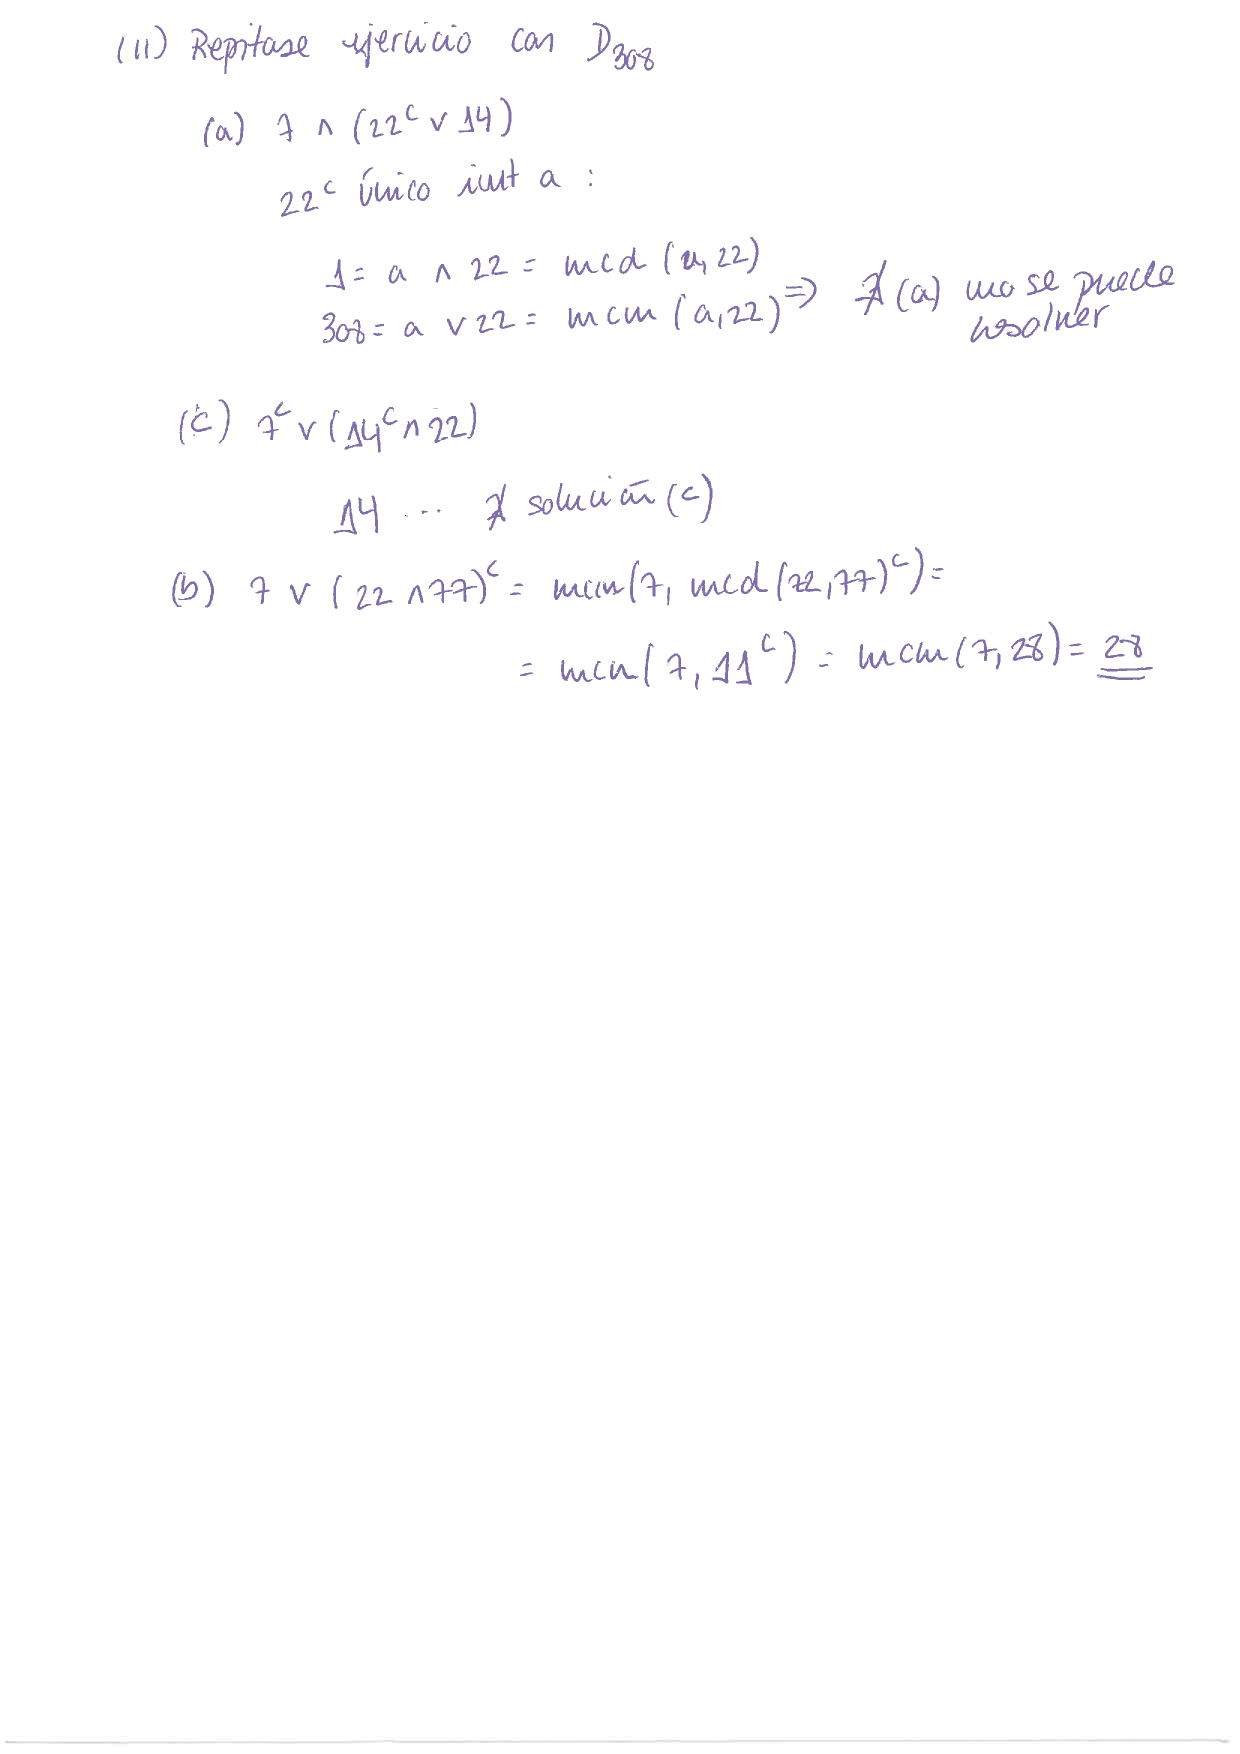 (II) Repítase ejercicio con D₃₀₈
(a) 7 ∧ (22ᶜ ∨ 14)
22ᶜ único int a :
1 = a ∧ 22 = mcd (a, 22)
308 = a ∨ 22 = mcm (a, 22) ⇒ ∄ (a) no se puede resolver
(c) 7ᶜ ∨ (14ᶜ ∧ 22)
14 ... ∄ solución (c)
(b) 7 ∨ (22 ∧ 77)ᶜ = mcm (7, mcd (22, 77)ᶜ) =
= mcm (7, 11ᶜ) = mcm (7, 28) = 28